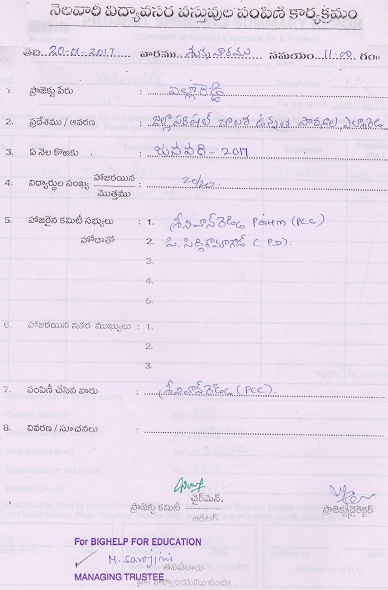 నెలవారి విద్యావసర వస్తువుల పంపిణి కార్యక్రమం
తేది 20-01-2017 వారము శుక్రవారము సమయం 11.00 గం॥
1. ప్రాజెక్టు పేరు : ఎల్లారెడ్డి
2. ప్రదేశము / ఆవరణ : జిల్లా పరిషత్ బాలికోన్నత పాఠశాల, ఎల్లారెడ్డి
3. ఏ నెల కొఱకు : జనవరి - 2017
4. విద్యార్థుల సంఖ్య హాజరయిన మొత్తము : 20/20
5. హాజరైన కమిటీ సభ్యులు హోదాతో : 1. శ్రీనివాస్ రెడ్డి PGHM (PCC)
2. పి. సిద్దిరాములు (PD).
3.
4.
5.
6. హాజరయిన ఇతర ముఖ్యులు : 1.
2.
3.
7. పంపిణీ చేసిన వారు : శ్రీనివాస్ రెడ్డి (PCC)
8. వివరణ / సూచనలు :
ప్రాజెక్టు కమిటీ ఛైర్మెన్. ప్రాజెక్టు డైరెక్టర్
For BIGHELP FOR EDUCATION
M. Sarojini
MANAGING TRUSTEE